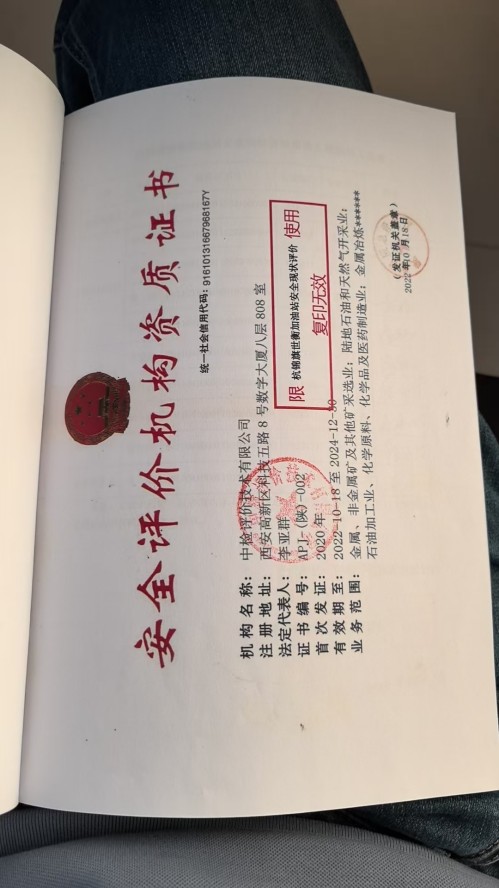 安全评价机构资质证书
统一社会信用代码：91610131667968167Y
机构名称：中检评价技术有限公司
注册地址：西安高新区科技五路8号数字大厦八层808室
法定代表人：李亚群
证书编号：APJ-（陕）-002
首次发证：2020年
有效期至：2022-10-18至2024-12-30
业务范围：金属、非金属矿及其他矿采选业；陆地石油和天然气开采业；
石油加工业、化学原料、化学品及医药制造业；金属冶炼******
限 杭锦旗世衡加油站安全现状评价 使用
复印无效
（发证机关盖章）
2022年10月18日